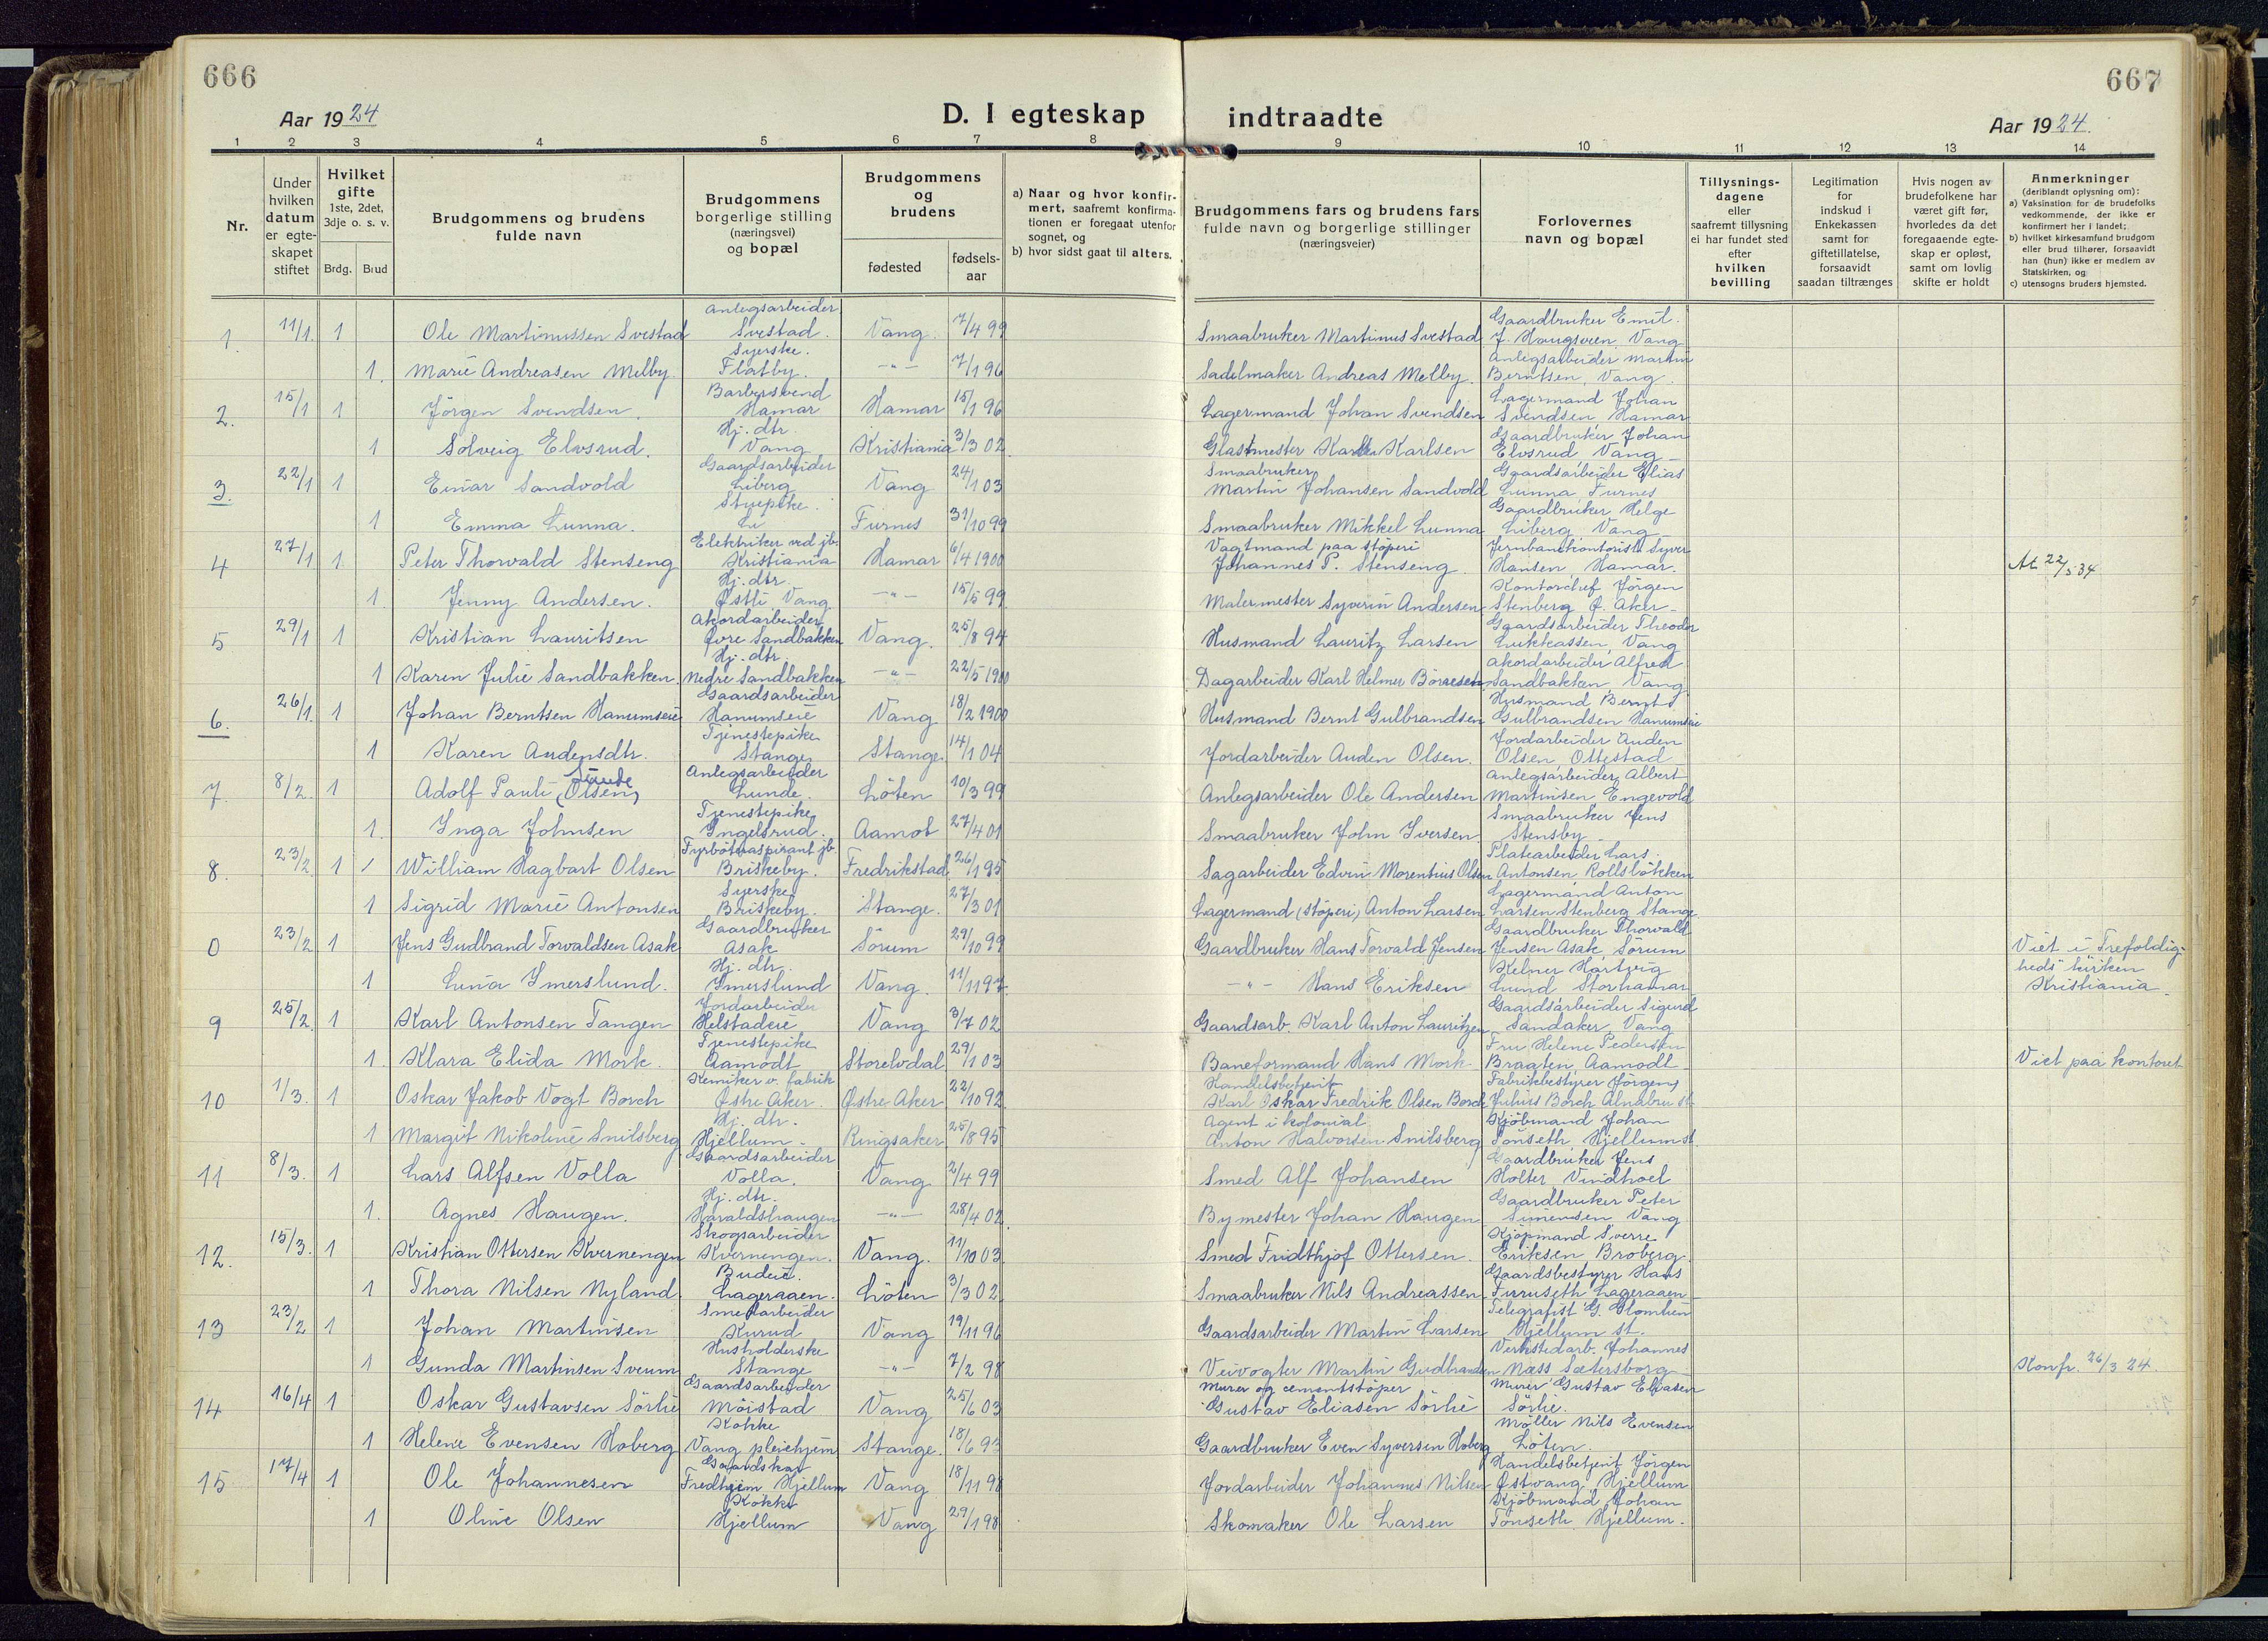 666
667
Aar 1924
D. I egteskap
indtraadte
Aar 1924.
1 2 3 4 5 6 7 8 9 10 11 12 13 14
Nr.
Under hvilken datum er egteskapet stiftet
Hvilket gifte 1ste, 2det, 3dje o. s. v.
Brdg. Brud
Brudgommens og brudens fulde navn
Brudgommens borgerlige stilling (næringsvei) og bopæl
Brudgommens og brudens
fødested
fødsels-aar
a) Naar og hvor konfirmert, saafremt konfirmationen er foregaat utenfor sognet, og
b) hvor sidst gaat til alters.
Brudgommens fars og brudens fars fulde navn og borgerlige stillinger (næringsveier)
Forlovernes navn og bopæl
Tillysningsdagene eller saafremt tillysning ei har fundet sted efter hvilken bevilling
Legitimation for indskud i Enkekassen samt for giftetillatelse, forsaavidt saadan tiltrænges
Hvis nogen av brudefolkene har været gift før, hvorledes da det foregaaende egteskap er opløst, samt om lovlig skifte er holdt
Anmerkninger
(deriblandt oplysning om):
a) Vaksination for de brudefolks vedkommende, der ikke er konfirmert her i landet;
b) hvilket kirkesamfund brudgom eller brud tilhører, forsaavidt han (hun) ikke er medlem av Statskirken, og
c) utensogns bruders hjemsted.
1. 11/1. 1 Ole Martinussen Svestad Anlegsarbeider Svestad. Vang. 7/4 99 Smaabruker Martinus Svestad Gaardbruker Emil J. Haugsveen, Vang
1. Marie Andreasen Melby. Syerske. Flatby. -"- 7/1 96 Sadelmaker Andreas Melby. Anlegsarbeider Martin Berntsen, Vang.
2. 15/1 1 Jörgen Svendsen. Barbersvend Hamar Hamar 15/1 96 Lagermand Johan Svendsen Lagermand Johan Svendsen Hamar
1 Solveig Elvsrud. Hj. dtr. Vang Kristiania 3/3 02. Glasmester Karlsen Gaardbruker Johan Elvsrud Vang
3. 22/1 1 Einar Sandvold Gaardsarbeider Liberg Vang 24/1 03 Smaabruker Martin Johansen Sandvold Gaardsarbeider Elias Lunna, Furnes
1 Emma Lunna. Stuepike. Li Furnes 31/10 99 Smaabruker Mikkel Lunna Gaardbruker Helge Liberg, Vang
4 27/1 1. Peter Thorvald Stenseng Elektriker ved jb. Kristiania Hamar 6/4 1900 Vagtmand paa støperi Johannes P. Stenseng. Jernbanekontorist Syver Hansen Hamar. At. 22/5 34
1. Jenny Andersen. Hj. dtr. Østli Vang -"- 15/5 99 Malermester Syverin Andersen Kontorchef Jörgen Stenberg Ø. Aker
5 29/1 1 Kristian Lauritsen Akordarbeider Øvre Sandbakken Vang. 25/8 94 Husmand Lauritz Larsen Gaardsarbeider Theodor Vang
1 Karen Julie Sandbakken. Hj. dtr. Nedre Sandbakken -"- 22/5 1900 Dagarbeider Karl Helmer Börresen Akordarbeider Alfred Sandbakken Vang
6. 26/1. 1 Johan Berntsen Hanumseie Gaardsarbeider Hanumseie Vang 18/2 1900 Husmand Bernt Gulbrandsen Husmand Bernt Gulbrandsen Hanumseie
1 Karen Audensdtr. Tjenestepike Stange Stange 14/1 04 Jordarbeider Auden Olsen. Jordarbeider Auden Olsen, Ottestad
7. 8/2. 1 Adolf Pauli (Olsen) Lunde Anlegsarbeider Lunde. Löten 10/3 99 Anlegsarbeider Ole Andersen Anlegsarbeider Albert Martinsen Engevold
1. Inga Johnsen Tjenestepike Ingelsrud. Aamot 27/4 01 Smaabruker John Iversen Smaabruker Jens Stensby
8. 23/2 1 William Hagbart Olsen Fyrbøteraspirant jb. Briskeby. Fredrikstad 26/1 95 Sagarbeider Edvin Morentius Olsen Platearbeider Lars Antonsen, Rollsløkken
1 Sigrid Marie Antonsen Syerske Briskeby. Stange. 27/3 01 Lagermand (støperi) Anton Larsen Lagermand Anton Larsen Stenberg Stange
0 23/2 1 Jens Gudbrand Torvaldsen Asak Gaardbruker Asak Sörum 29/10 99 Gaardbruker Hans Torvald Jensen Gaardbruker Thorvald Jensen Asak, Sörum Viet i Trefoldigheds kirken Kristiania
1 Lina Imerslund. Hj. dtr. Imerslund Vang. 11/11 97. -"- Hans Eriksen Kelner Hartvig Lund Storhamar
9 25/2. 1 Karl Antonsen Tangen Jordarbeider Helstadeie Vang 3/7 02 Gaardsarb. Karl Anton Lauritzen Gaardsarbeider Sigurd Sandaker, Vang
1. Klara Elida Mork. Tjenestepike Aamodt Storelvdal 29/1 03 Baneformand Hans Mork Fru Helene Pedersen Braaten Aamodt Viet paa kontoret
10 1/3. 1 Oskar Jakob Vogt Borch Kemiker v. fabrik Østre Aker. Østre Aker 22/10 92 Handelsbetjent Karl Oskar Fredrik Olsen Borch Fabrikbestyrer Jörgen Julius Borch Alnabru st.
1 Margit Nikoline Snilsberg Hj. dtr. Hjellum. Ringsaker 25/8 95 Agent i kolonial Anton Halvorsen Snilsberg Kjöbmand Johan Tönseth, Hjellum st.
11 8/3. 1 Lars Alfsen Volla Gaardsarbeider Volla. Vang 2/4 99 Smed Alf Johansen Gaardbruker Jens Holter, Vindhoel
1. Agnes Haugen. Hj. dtr. Haraldshaugen -"- 28/4 02. Bymester Johan Haugen Gaardbruker Peter Simensen Vang
12. 15/3. 1 Kristian Ottersen Kvernengen Skogsarbeider Kvernengen. Vang. 11/10 03 Smed Fridthjof Ottersen. Kjöpmand Sverre Eriksen, Broberg.
1 Thora Nilsen Nyland Budeie. Lageraaen. Löten 3/3 02 Smaabruker Nils Andreassen Gaardsbestyrer Hans Furuseth Lageraaen
13 23/2 1 Johan Martinsen Smedarbeider Kurud Vang 19/11 96 Gaardsarbeider Martin Larsen Telegrafist G. Glomhein Hjellum st.
1 Gunda Martinsen Sveum Husholderske Stange -"- 7/2 98 Veivogter Martin Gudbrandsen Verkstedarb. Johannes Næss Sætersborg Konfr. 26/3 24.
14 16/4 1 Oskar Gustavsen Sörlie Gaardsarbeider Möistad Vang 25/6 03 Murer og cementstöper Gustav Eliasen Sörlie Murer Gustav Eliasen Sörlie.
1 Helene Evensen Hoberg Kokke Vang pleiehjem Stange. 18/6 93 Gaardbruker Even Syversen Hoberg Möller Nils Evensen Löten.
15 17/4 1 Ole Johannesen Gaardskar Fredheim Hjellum Vang 18/11 98 Jordarbeider Johannes Nilsen Handelsbetjent Jörgen Østvang, Hjellum
1 Oline Olsen Kokke Hjellum Vang 29/1 98 Skomaker Ole Larsen Kjöbmand Johan Tönseth, Hjellum.